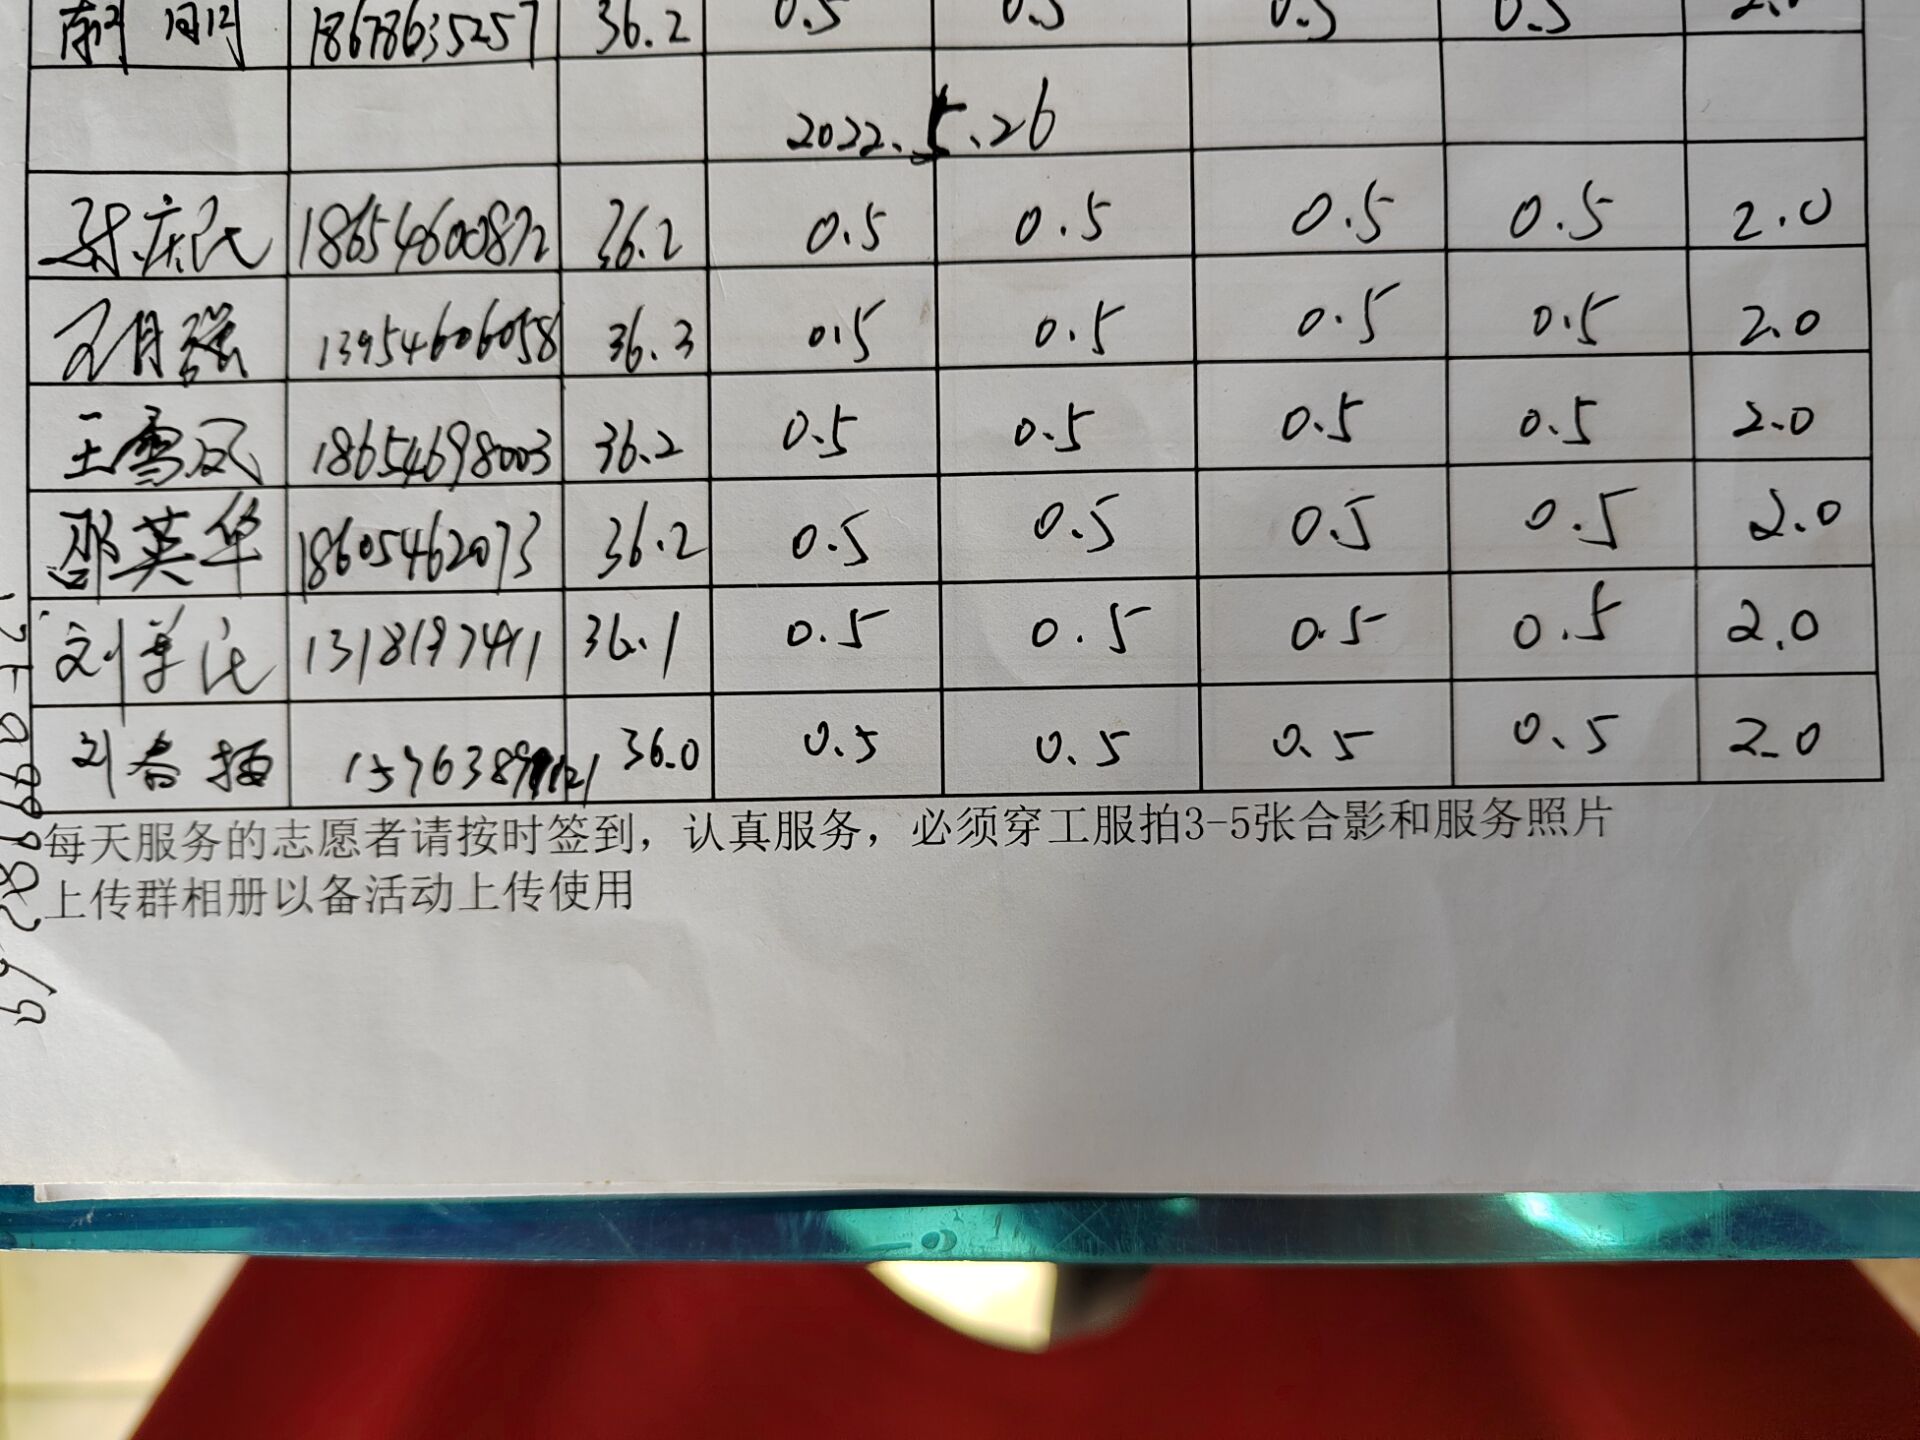 18678635257 36.2 0.5 0.5 0.5 0.5 2.0
2022.5.26
庆民 18654600872 36.2 0.5 0.5 0.5 0.5 2.0
王月强 13954606058 36.3 0.5 0.5 0.5 0.5 2.0
王雪凤 18654698003 36.2 0.5 0.5 0.5 0.5 2.0
邵英华 18605462073 36.2 0.5 0.5 0.5 0.5 2.0
刘 36.1 0.5 0.5 0.5 0.5 2.0
刘春 36.0 0.5 0.5 0.5 0.5 2.0
每天服务的志愿者请按时签到，认真服务，必须穿工服拍3-5张合影和服务照片
上传群相册以备活动上传使用